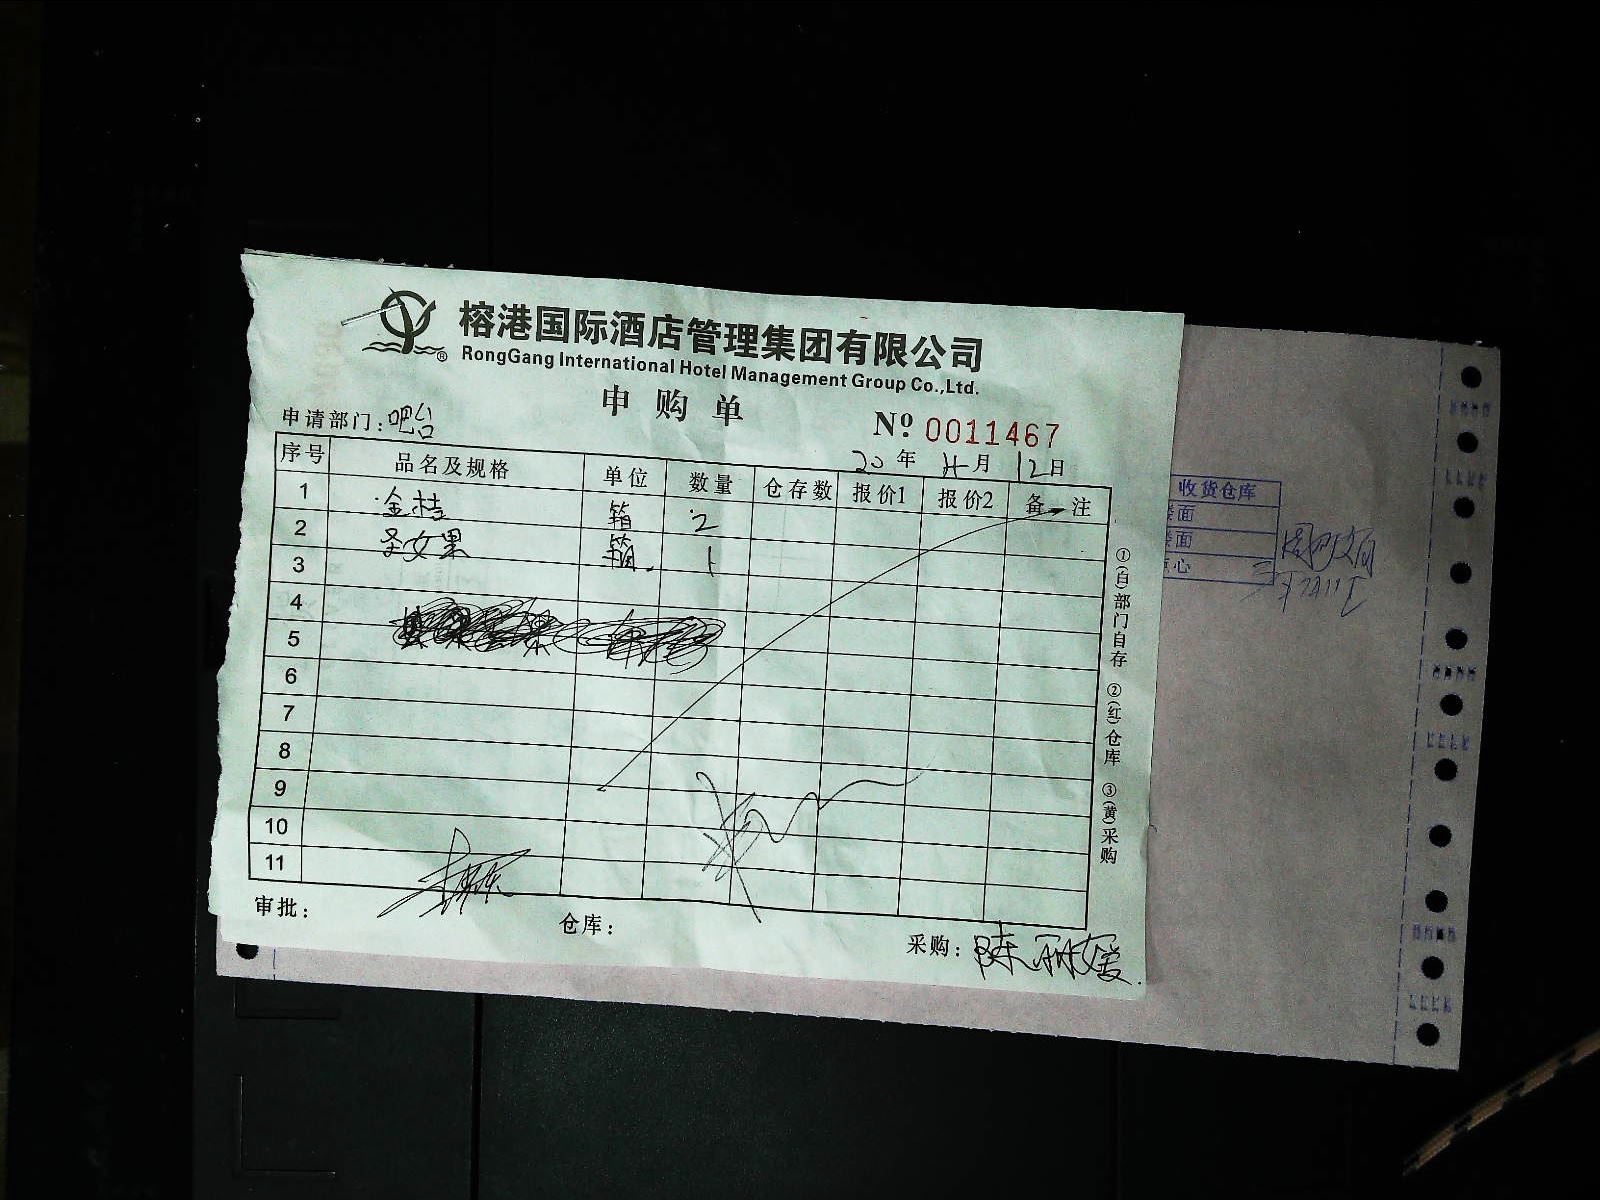 榕港国际酒店管理集团有限公司
RongGang International Hotel Management Group Co.,Ltd.
申购单
№ 0011467
申请部门：吧台
20 年 月 12日
序号 品名及规格 单位 数量 仓存数 报价1 报价2 备 注
1 金桔 箱 2
2 圣女果 箱 1
3
4
5
6
7
8
9
10
11
①(白)部门自存 ②(红)仓库 ③(黄)采购
审批：
仓库：
采购：陈丽媛
收货仓库
面
面
心